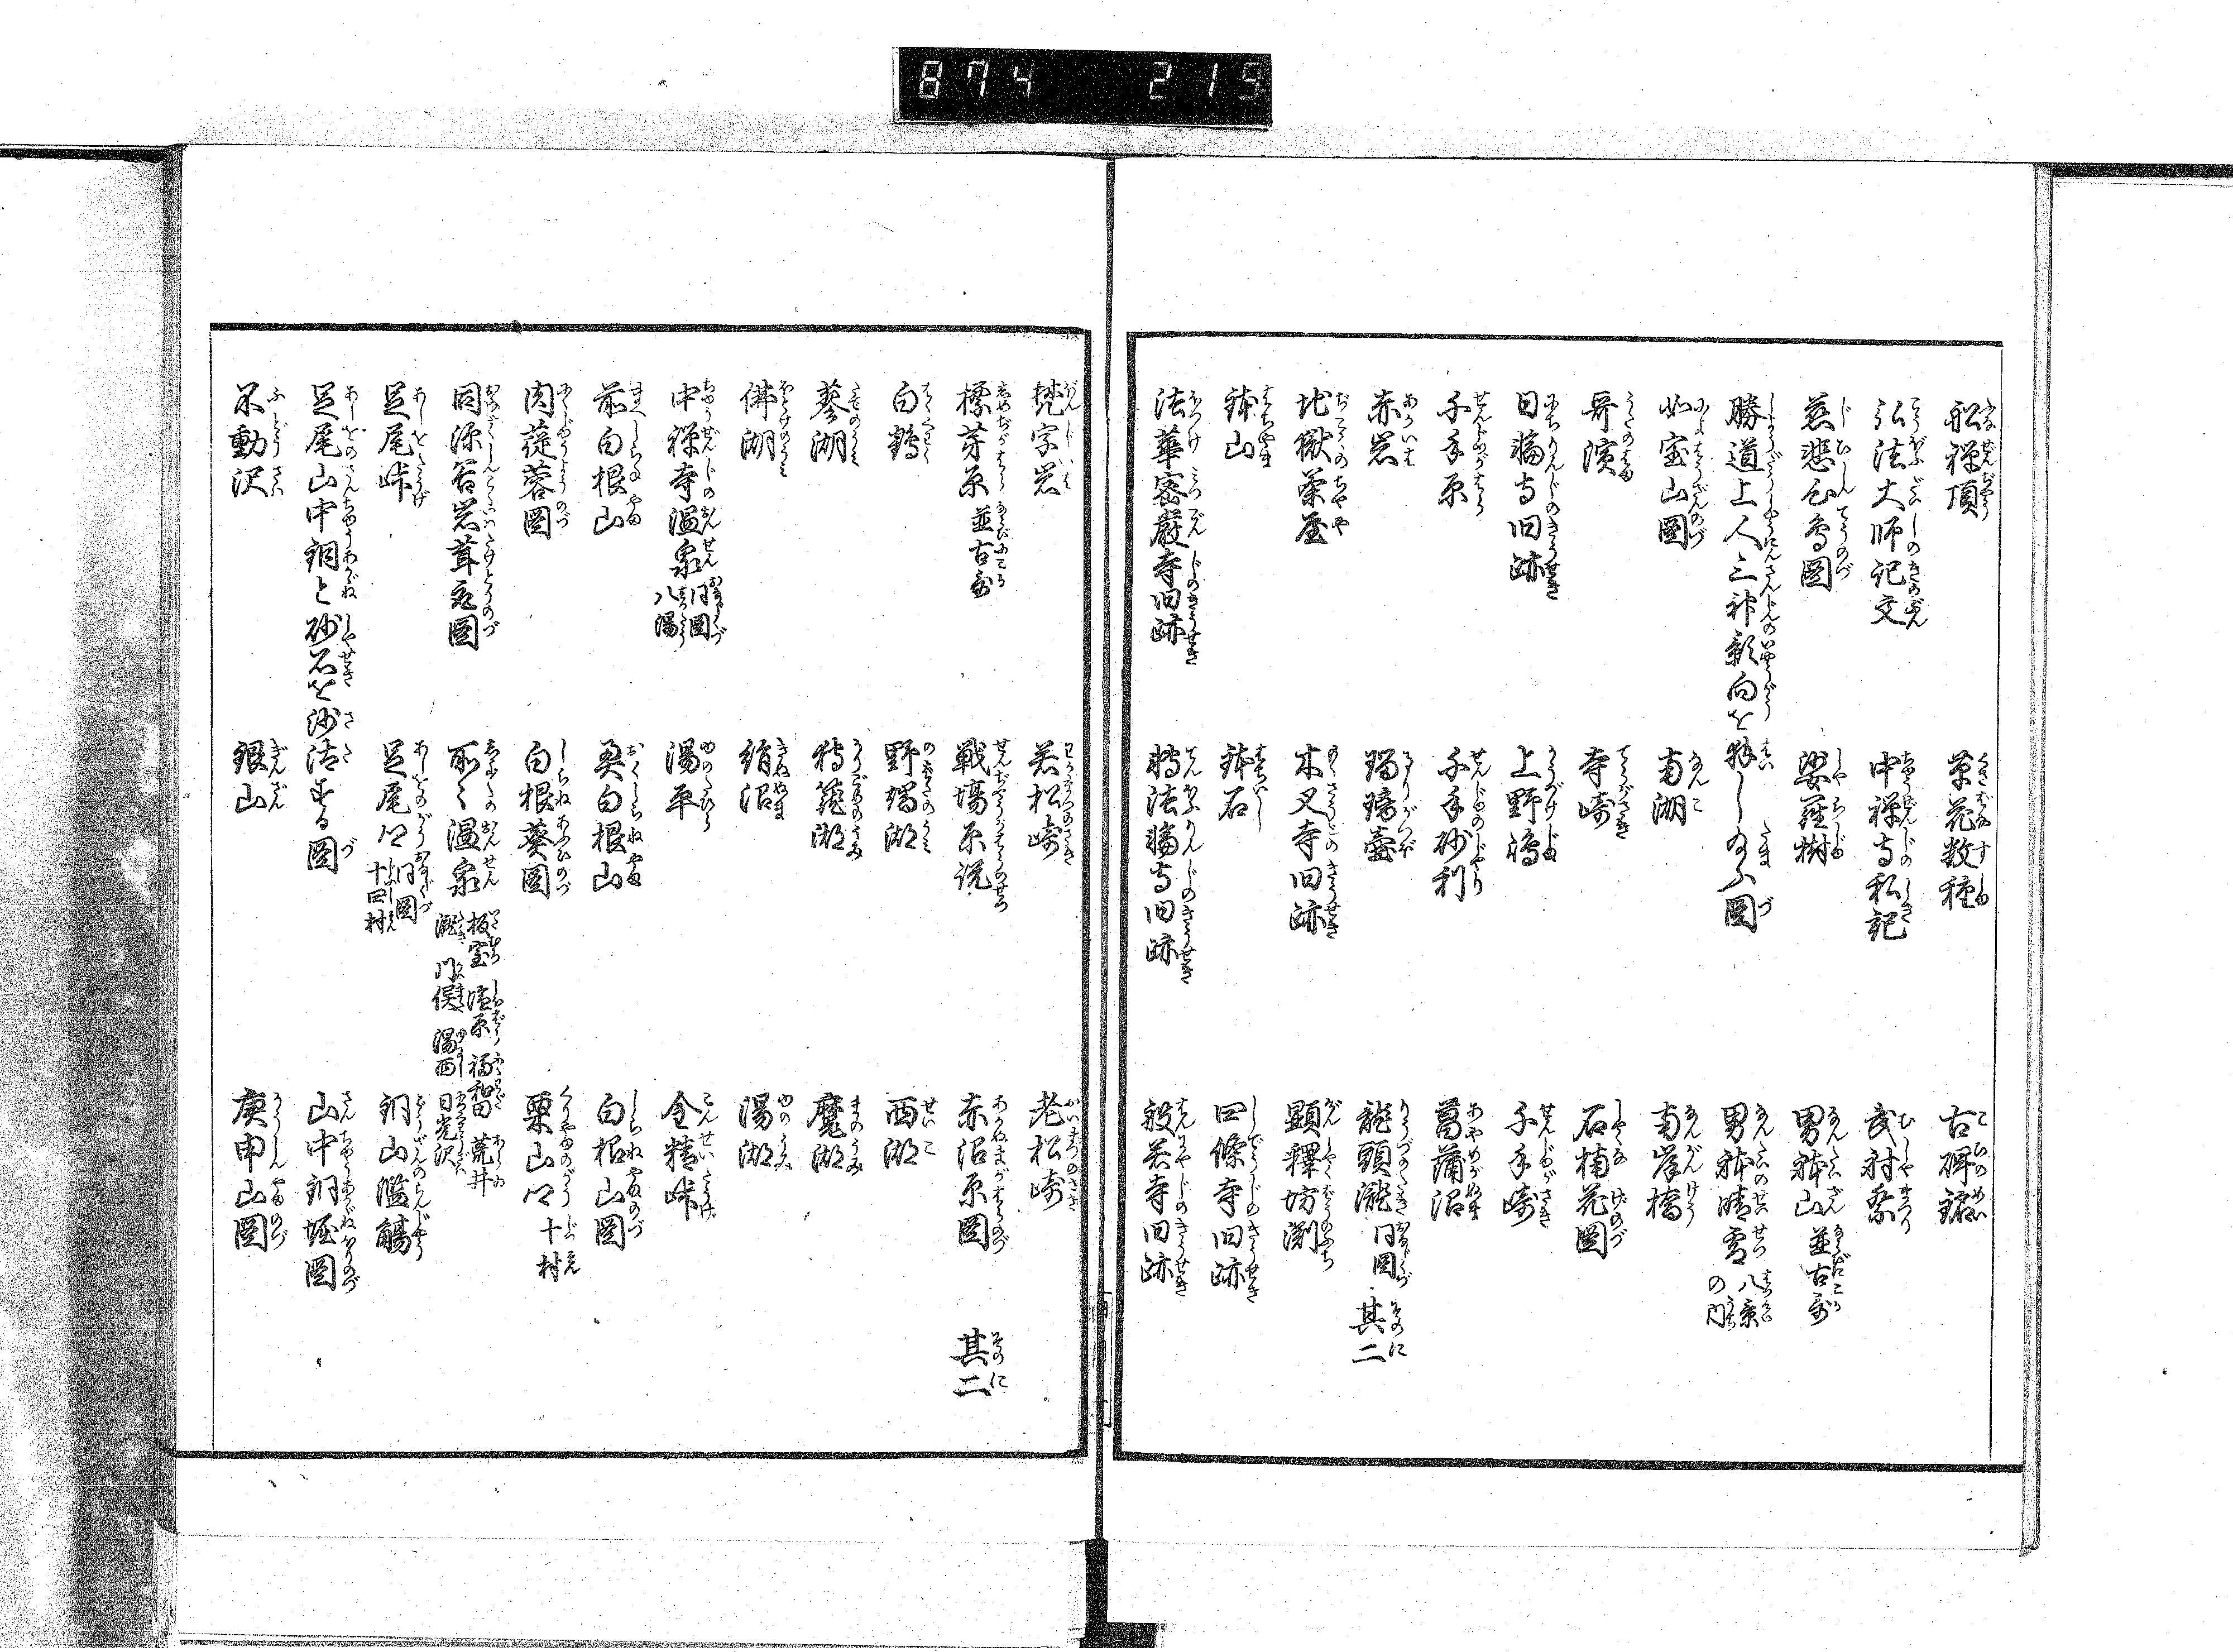 874 219
船禅頂 草花数種 古碑銘
弘法大師記文 中禅寺私記 武射祭
慈悲心鳥図 娑羅樹 男躰山 並古哥
勝道上人三神影向を拝し給ふ図 男躰晴雪 八景の内
如宝山図 南湖 南岸橋
哥濱 寺崎 石楠花図
日輪寺旧跡 上野嶋 千手崎
千手原 千手砂利 菖蒲沼
赤岩 瑠璃壷 龍頭瀧 同図 其二
地獄茶屋 木叉寺旧跡 顕釋坊渕
鉢山 鉢石 四條寺旧跡
法華密厳寺旧跡 轉法輪寺旧跡 般若寺旧跡
梵字岩 若松崎 老松崎
標芽原 並古哥 戦場原説 赤沼原図 其二
白鶴 野瑒湖 西湖
蓼湖 特籠湖 魔湖
佛湖 絹沼 湯湖
中禅寺温泉 同図 八湯 湯平 金精峠
前白根山 奥白根山 白根山図
肉蓯蓉図 白根葵図 栗山口 十村
同深谷岩茸取図 所〻温泉 板室 塩原 福和田 荒井 瀧 川俣 湯西 日光沢
足尾峠 足尾口 同図 十四村 銅山濫觴
足尾山中銅と砂石を沙汰する図 山中銅堀図
不動沢 銀山 庚申山図